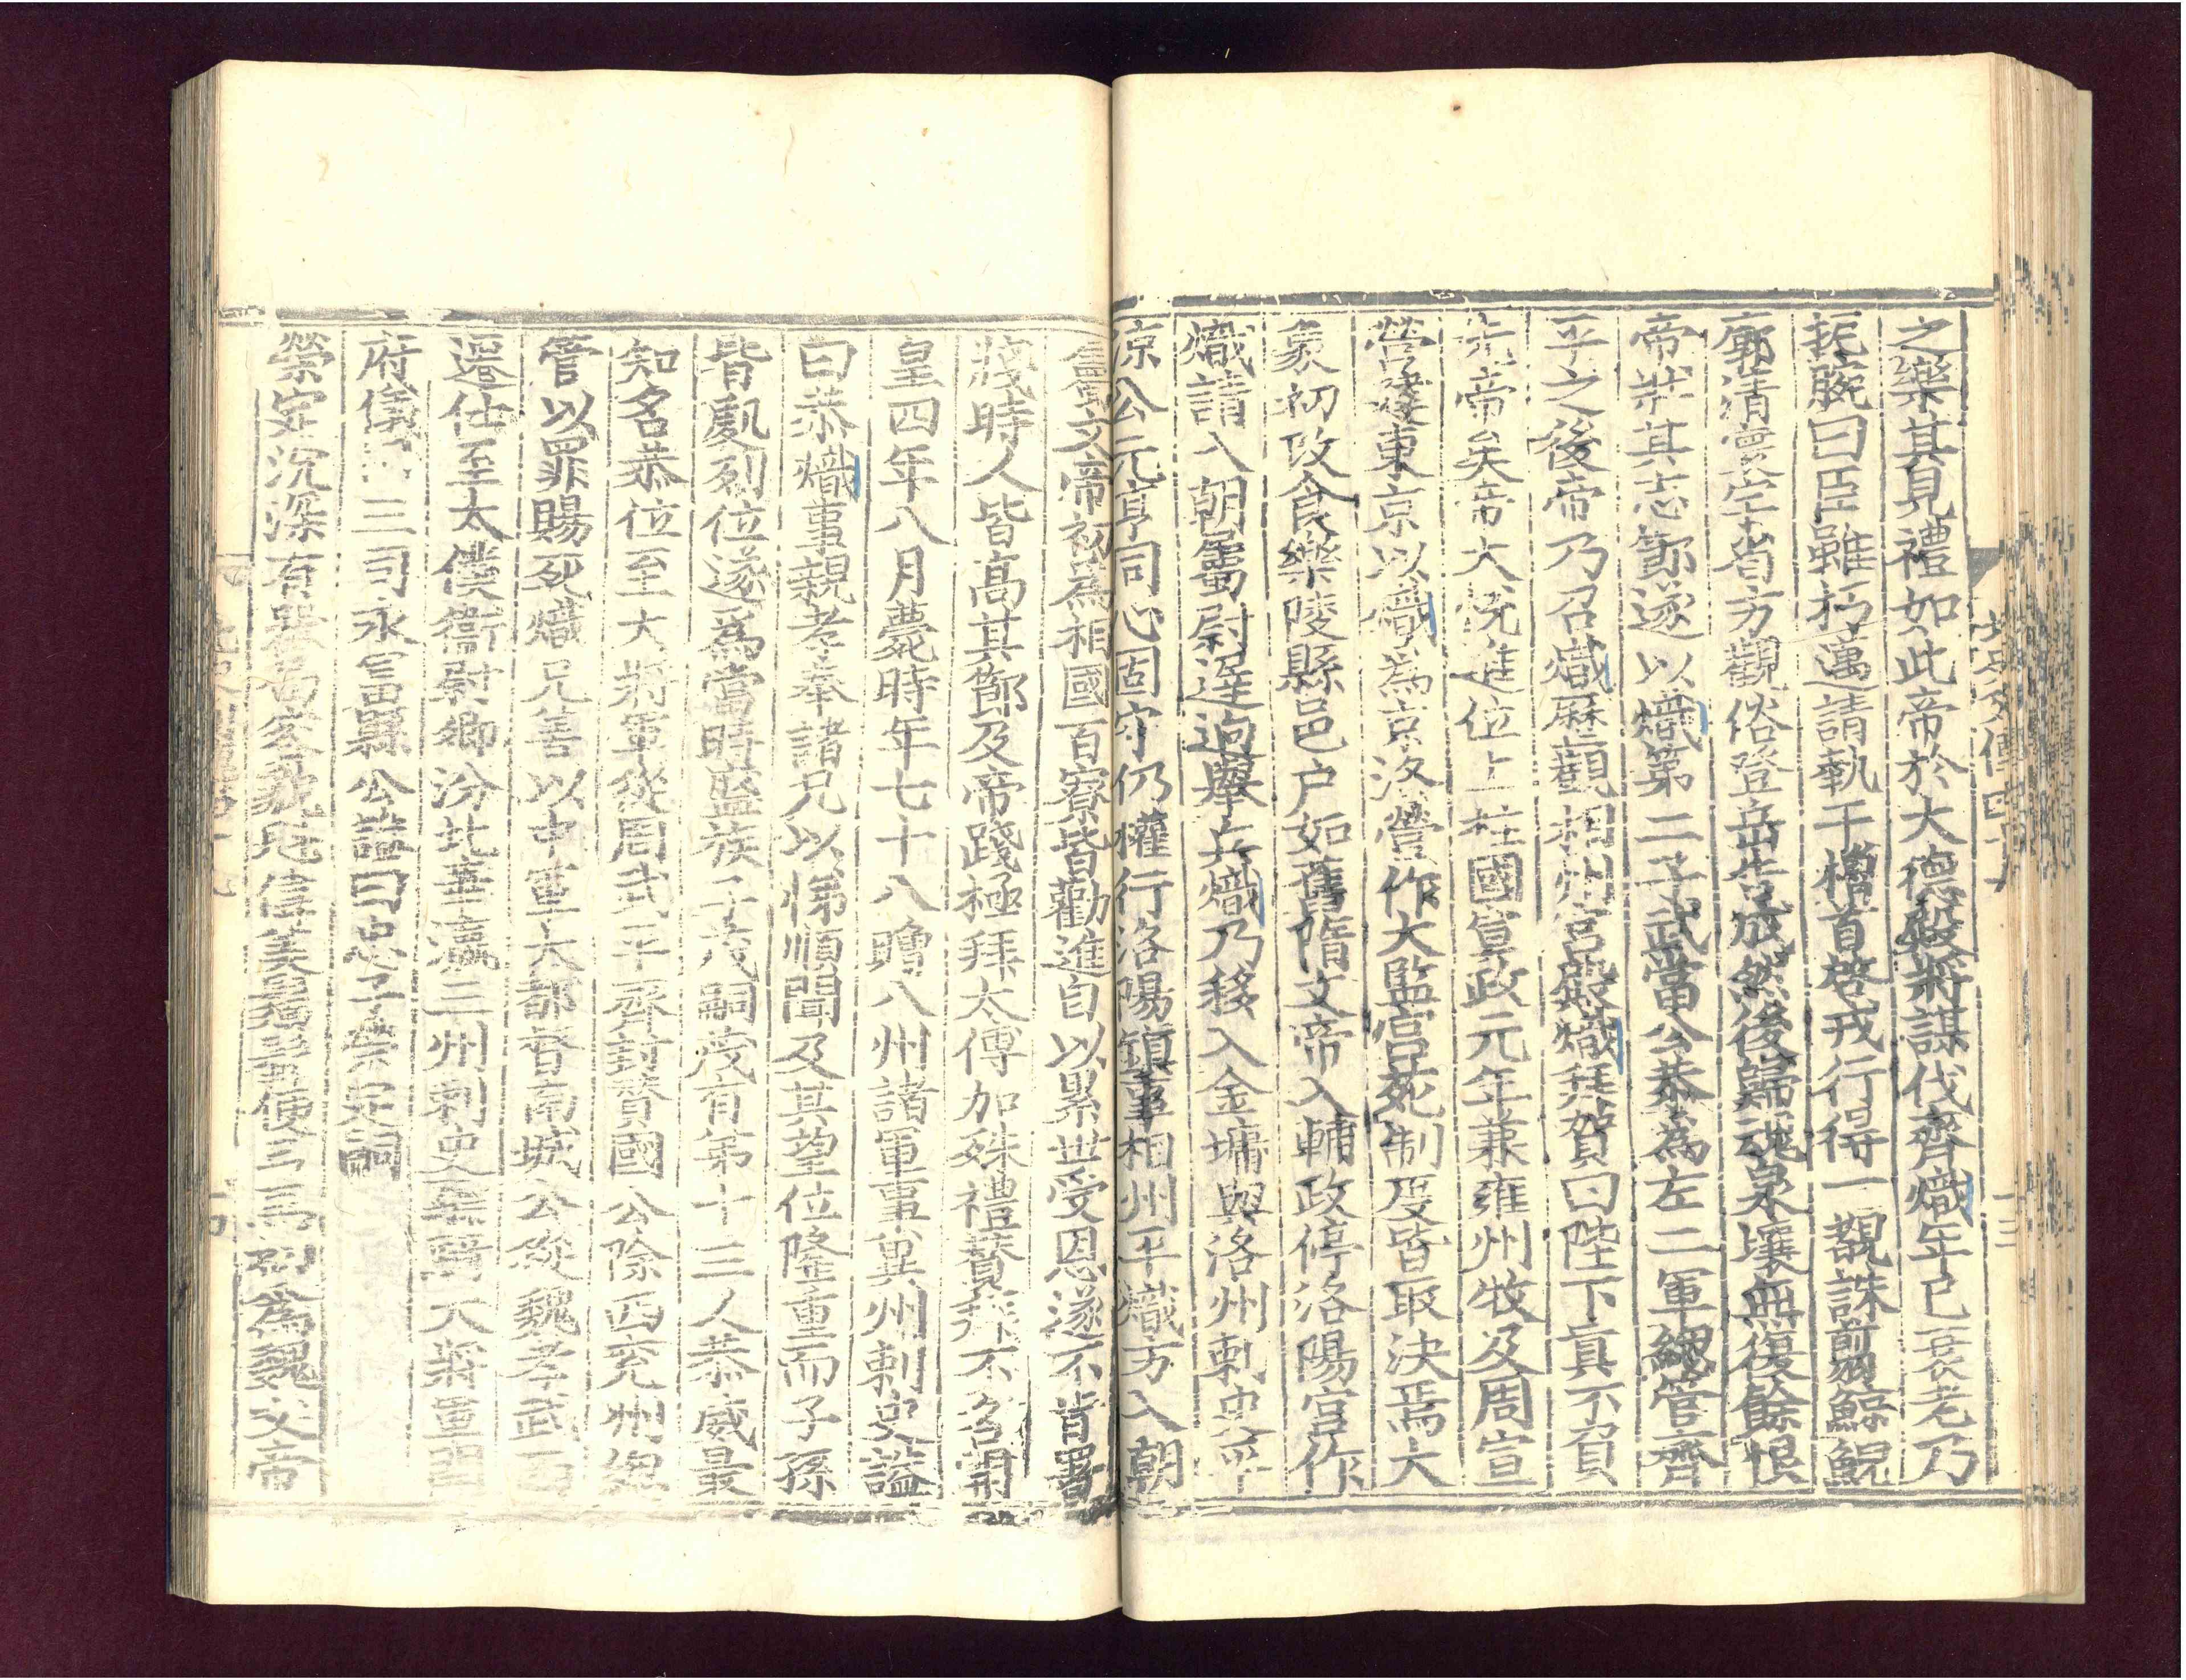 之樂其見禮如此帝於大德殿將謀伐齊熾年已衰老乃
扼腕曰臣雖朽邁請執干櫓首啓戎行得一覩誅翦鯨鯢
廓清寰宇省方觀俗登岳告成然後歸魂泉壤無復餘恨
帝壯其志節遂以熾第二子武當公恭為左二軍緫管齊
平之後帝乃召熾歷觀相州宮殿熾拜賀曰陛下真不負
先帝矣帝大悅進位上柱國宣政元年兼雍州牧及周宣
營建東京以熾為京洛營作大監宮苑制度皆取決焉大
象初改食樂陵縣邑户如舊隋文帝入輔政停洛陽宮作
熾請入朝屬尉遲逈舉兵熾乃移入金墉與洛州刺史平
涼公元亨同心固守仍權行洛陽鎮事相州平熾方入朝
屬文帝初為相國百寮皆勸進自以累世受恩遂不肯署
牋時人皆高其節及帝踐極拜太傅加殊禮贊拜不名開
皇四年八月薨時年七十八贈八州諸軍事兾州刺史謚
曰恭熾事親孝奉諸兄以悌順聞及其望位隆重而子孫
皆處列位遂為當時盛族子茂嗣茂有弟十三人恭威最
知名恭位至大將軍從周武平齊封贊國公除西兖州緫
管以罪賜死熾兄善以中軍大都督南城公從魏孝武西
遷仕至太僕衛尉卿汾北華瀛三州刺史驃騎大將軍開
府儀 三司永冨縣公謚曰忠子榮定嗣
榮定沉深有器局容貌瓌偉美鬚髯便弓馬初為魏文帝